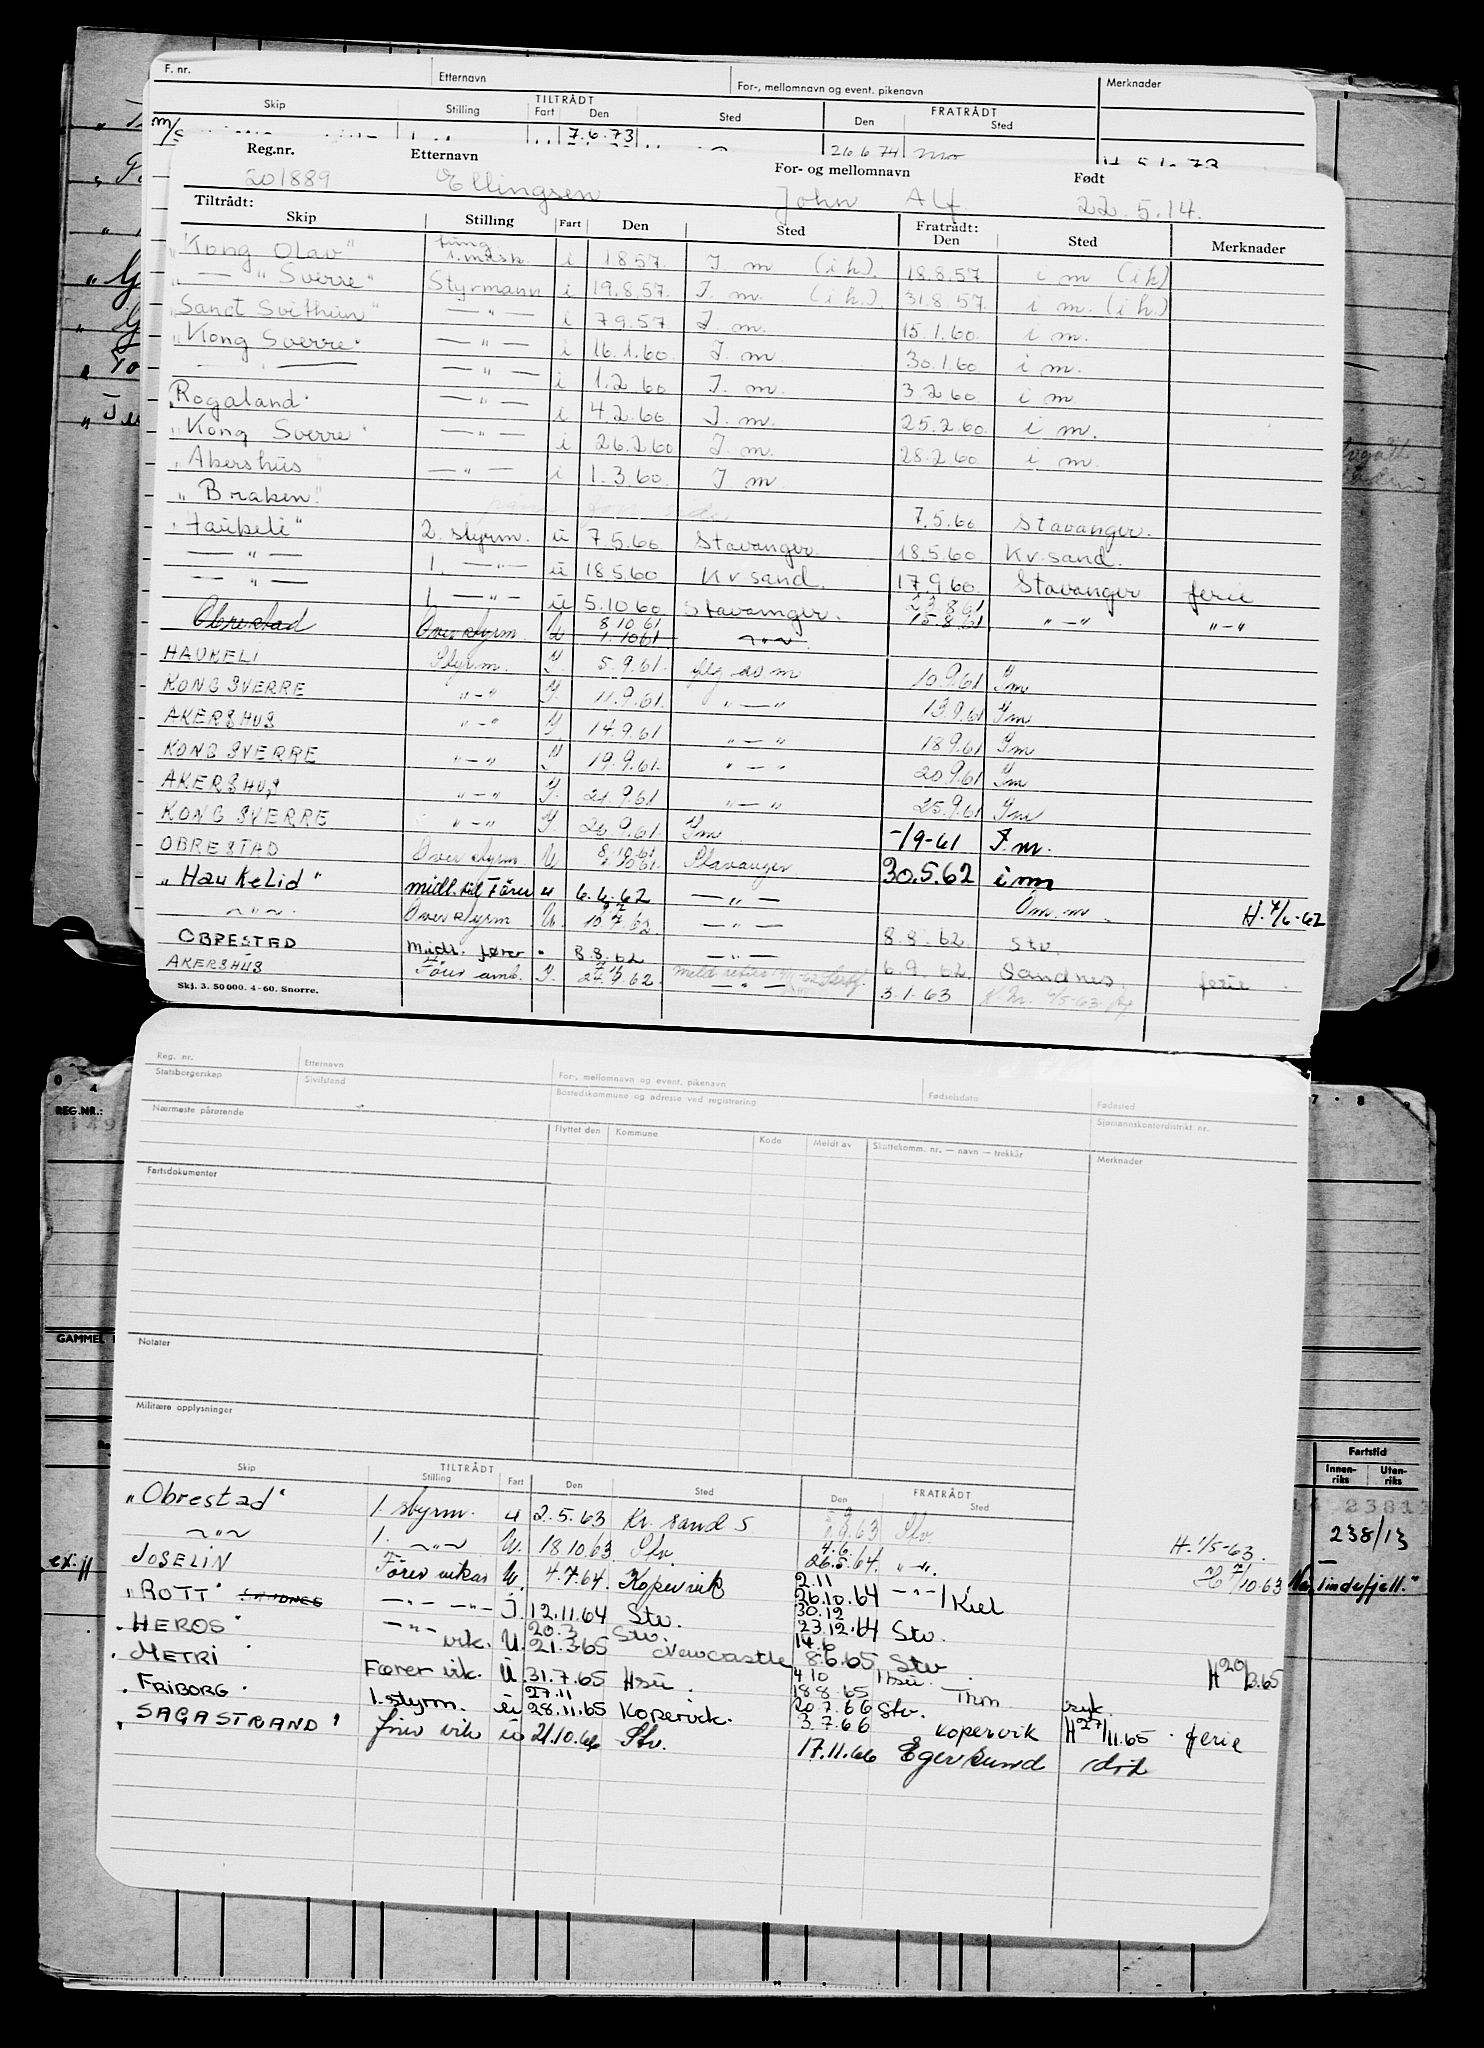 F. nr. Etternavn For-, mellomnavn og event. pikenavn Merknader
TILTRÅDT FRATRÅDT
Skip Stilling Fart Den Sted Den Sted
m/s 7.6.73 26.6.74 Mo
Reg.nr. Etternavn For- og mellomnavn Født
201889 Ellingsen John Alf 22.5.14.
Tiltrådt: Fratrådt:
Skip Stilling Fart Den Sted Den Sted Merknader
"Kong Olav" i 1857. I. m (i h). 18.8.57. i m (i h)
— " Sverre" Styrmann i 19.8.57. I. m. (i h.) 31.8.57. i m. (i h.)
"Sanct Svithun" — " — i 7.9.57 I. m. 15.1.60. i m.
"Kong Sverre" — " — i 16.1.60. I. m. 30.1.60 i m.
— " — — " — i 1.2.60 I. m. 3.2.60 i m
Rogaland. — " — i 4.2.60 I. m. 25.2.60. i m.
"Kong Sverre" — " — i 26.2.60 I. m. 28.2.60 i m.
"Akershus — " — i 1.3.60. I m
"Braken" 7.5.60 Stavanger.
"Haukeli" 2. styrm. u 7.5.60. Stavanger. 18.5.60 Kv.sand.
— " — 1. — " — u 18.5.60 Kv.sand. 17.9.60 Stavanger ferie
— " — 1 — " — u 5.10.60 Stavanger. 23.8.61 15.8.61 " — " " — "
Obrestad Overstyrm. U 8.10.61 1.10.61 — " —
HAUKELI Styrm. I. 5.9.61. flg av m 10.9.61 Im
KONG SVERRE " — " I. 11.9.61. " — " 13.9.61 Im
AKERSHUS " — " I. 14.9.61 " — " 18.9.61 Im
KONG SVERRE " — " I. 19.9.61. " — " 20.9.61 Im
AKERSHUS " — " I. 21.9.61 " — " 25.9.61 Im
KONG SVERRE " — " I. 26.9.61. Im -19-61 I.m.
OBRESTAD Overstyrm U. 8.10.61 Stavanger 30.5.62 i m
"Haukelid" midl. til Förer u 6.6.62 — " — Om. m. H. 7/6-62
— " — Overstyrm U. 10.7.62. — " — 8.8.62. Stv
OBRESTAD Midl. fører " 8.8.62 — " — 6.9.62. Sandnes. ferie
AKERSHUS Förer amb. I. 24.9.62 — " — 3.1.63
Skj. 3. 50000. 4-60. Snorre.
Reg. nr. Etternavn For-, mellomnavn og event. pikenavn Fødselsdato Fødested
Statsborgerskap Sivilstand Bostedskommune og adresse ved registrering Sjømannskontordistrikt nr.
Nærmeste pårørende Flyttet den Kommune Kode Meldt av Skattekomm. nr. — navn — trekkår Merknader
Fartsdokumenter
REG.NR.:
GAMMEL
Notater
Militære opplysninger
Fartstid
Innen-riks Uten-riks
TILTRÅDT FRATRÅDT
Skip Stilling Fart Den Sted Den Sted
"Obrestad" 1. styrm. u 2.5.63 Kr. sand S 63 Stv. H. 1/5-63.
— " — 1. — " — U. 18.10.63 Stv. 4.6. 26.5.64. " — " . H 7/10.63
JOSELIN Förer vikar U. 4.7.64. Kopervik 2.11 26.10.64 — " — / Kiel
"ROTT" — " — — " — j. 12.11.64 Stv. 30.12 23.12.64 Stv.
"HEROS" — " — vik. U. 20.3 21.3.65 Stv. Newcastle 14.6 8.6.65 Stv. H 20/3.65
"METRI Fører vik. U. 31.7.65 Hsu. 4.10 18.8.65 Hsu. Thm syk.
"FRIBORG. 1. styrm. u 27.11 28.11.65 Kopervik. 20.7.66 3.7.66 Stv. Kopervik H 27/11.65 . ferie
"SAGASTRAND" fører vik u 21.10.66 Stv. 17.11.66 Egersund død
238/13
lindefjell."